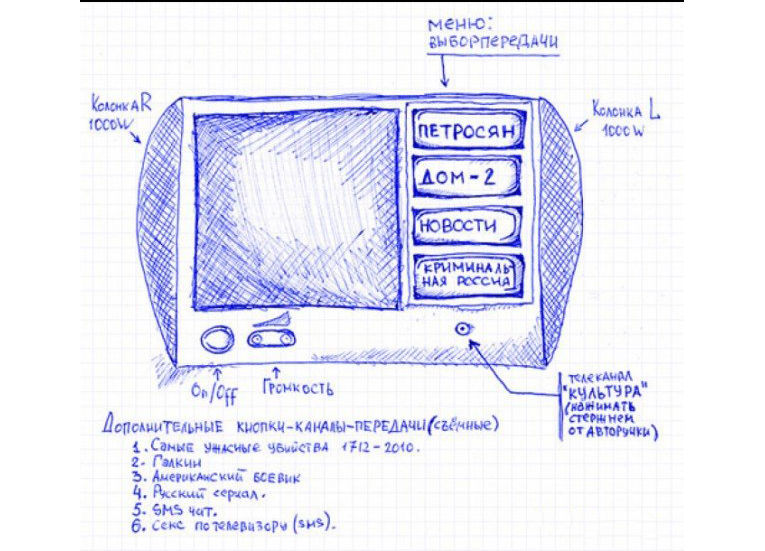 МЕНЮ:
ВЫБОРПЕРЕДАЧИ
Колонка R
1000W
Колонка L
1000W
ПЕТРОСЯН
ДОМ-2
НОВОСТИ
КРИМИНАЛЬ
НАЯ РОССИЯ
On/Off
Громкость
ТЕЛЕКАНАЛ
"КУЛЬТУРА"
(НАЖИМАТЬ
СТЕРЖНЕМ
ОТ АВТОРУЧКИ)
Дополнительные кнопки-каналы-передачи (съёмные)
1. Самые ужасные убийства 1712-2010.
2. Галкин
3. Американский боевик
4. Русский сериал.
5. SMS чат.
6. Секс по телевизору (sms).